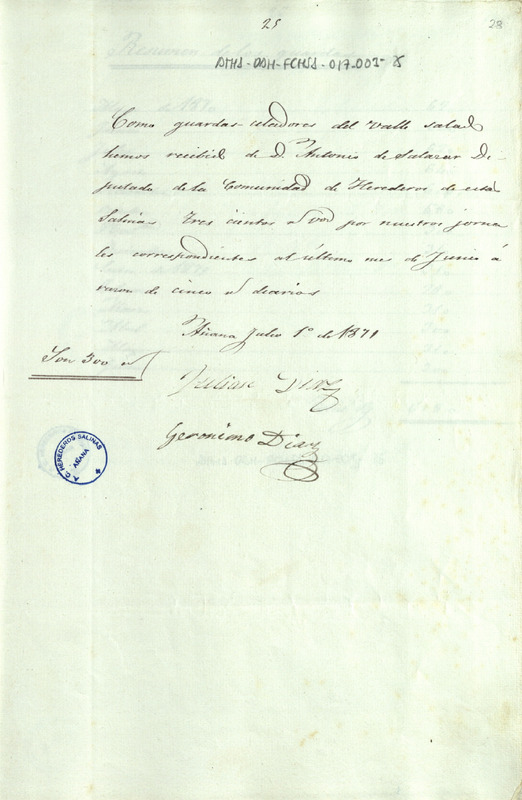 25
28
Como guardas celadores del Valle salado
hemos recibido de D. Antonio de Salazar Di
putado de la Comunidad de Herederos de estas
Salinas trescientos por nuestros jorna
les correspondientes al último mes de Junio á
razon de cinco diarios
Añana Julio 1º de 1871
Son 300
Julian Diaz
Geronimo Diaz
A.C. HEREDEROS SALINAS
AÑANA